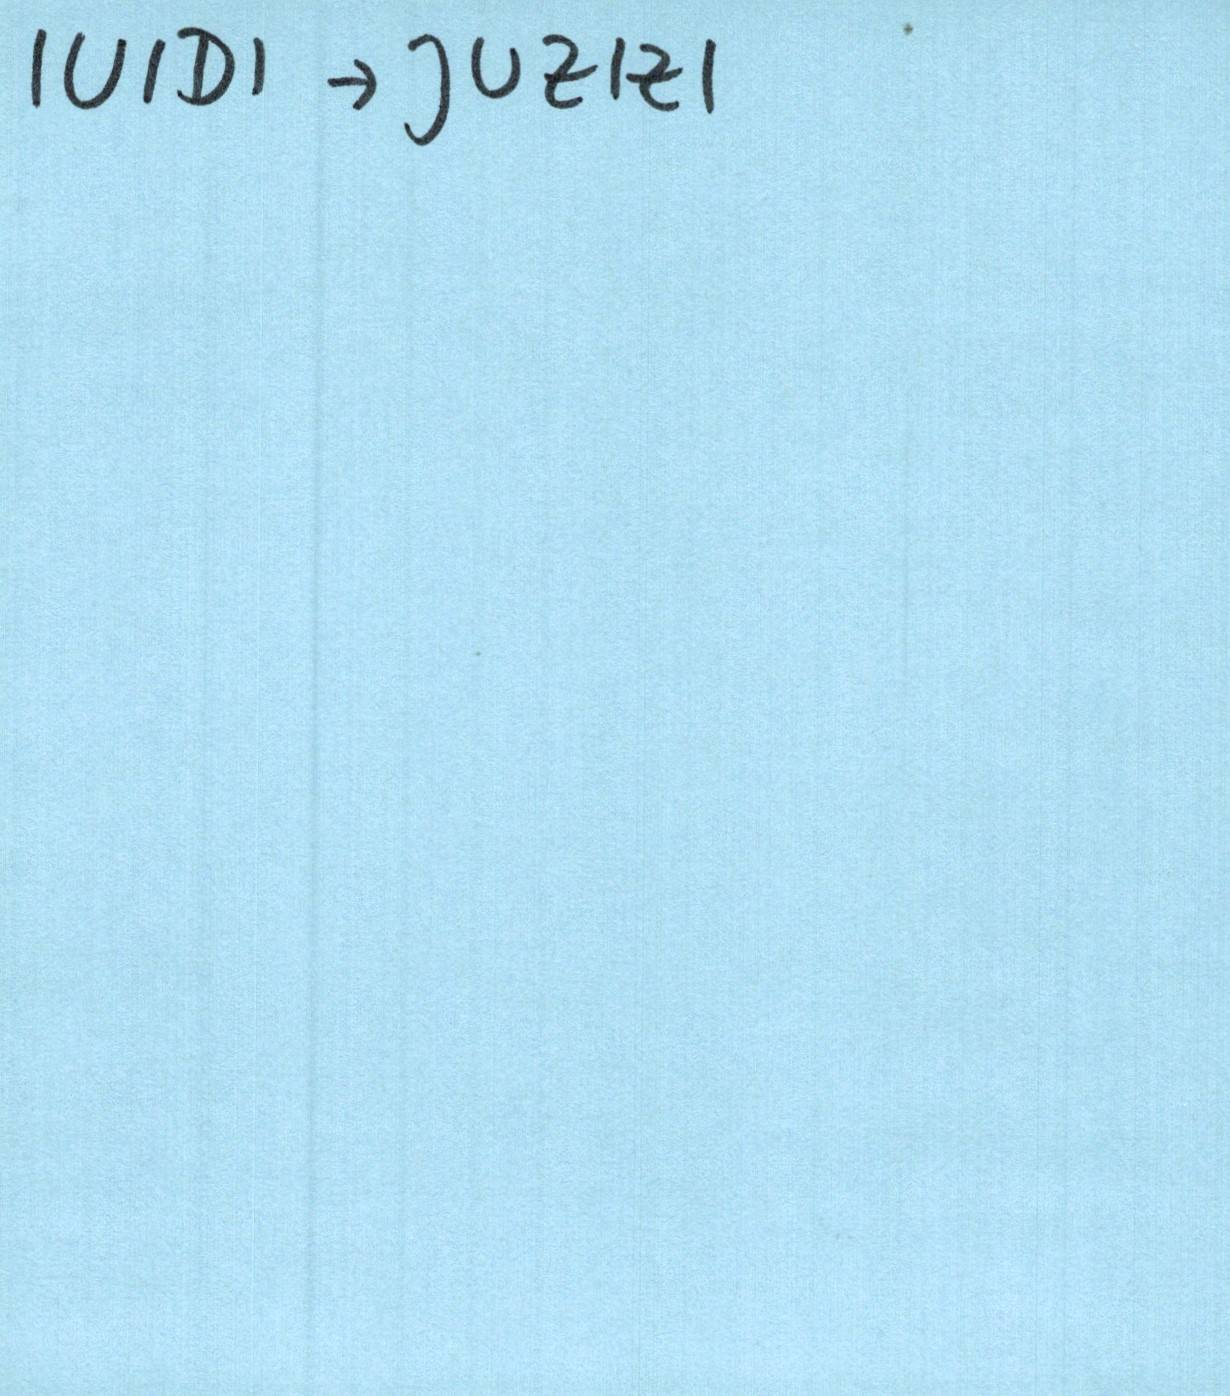 IUIDI → JUZIZI